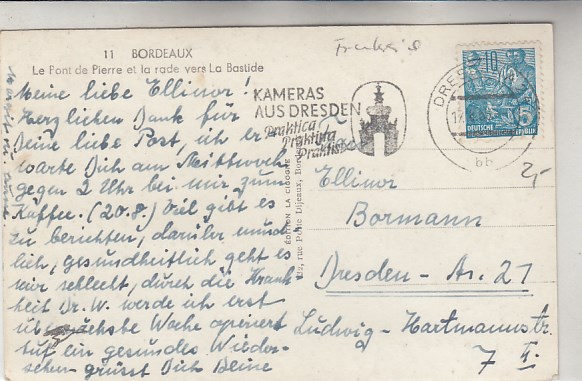 11 BORDEAUX
Le Pont de Pierre et la rade vers La Bastide
Meine liebe Ellinor!
Herzlichen Dank für
Deine liebe Post, ich er-
warte Dich am Mittwoch
gegen 2 Uhr bei mir zum
Kaffee. (20.8.) Viel gibt es
zu berichten, darüber münd-
lich, gesundheitlich geht es
mir schlecht, durch die Krank
heit Dr. W. werde ich erst
Woche operiert
auf ein gesundes Wieder-
sehen grüsst Dich Deine
KAMERAS
AUS DRESDEN
Praktica
Praktina
Praktisix
DRESDEN
bb
10
DEUTSCHE
REPUBLIK
5
2,-
ÉDITION LA CIGOGNE
rue Porte Dijeaux, Bor
Ellinor
Bormann
Dresden - A. 27
Ludwig - Hartmannstr.
7 II.